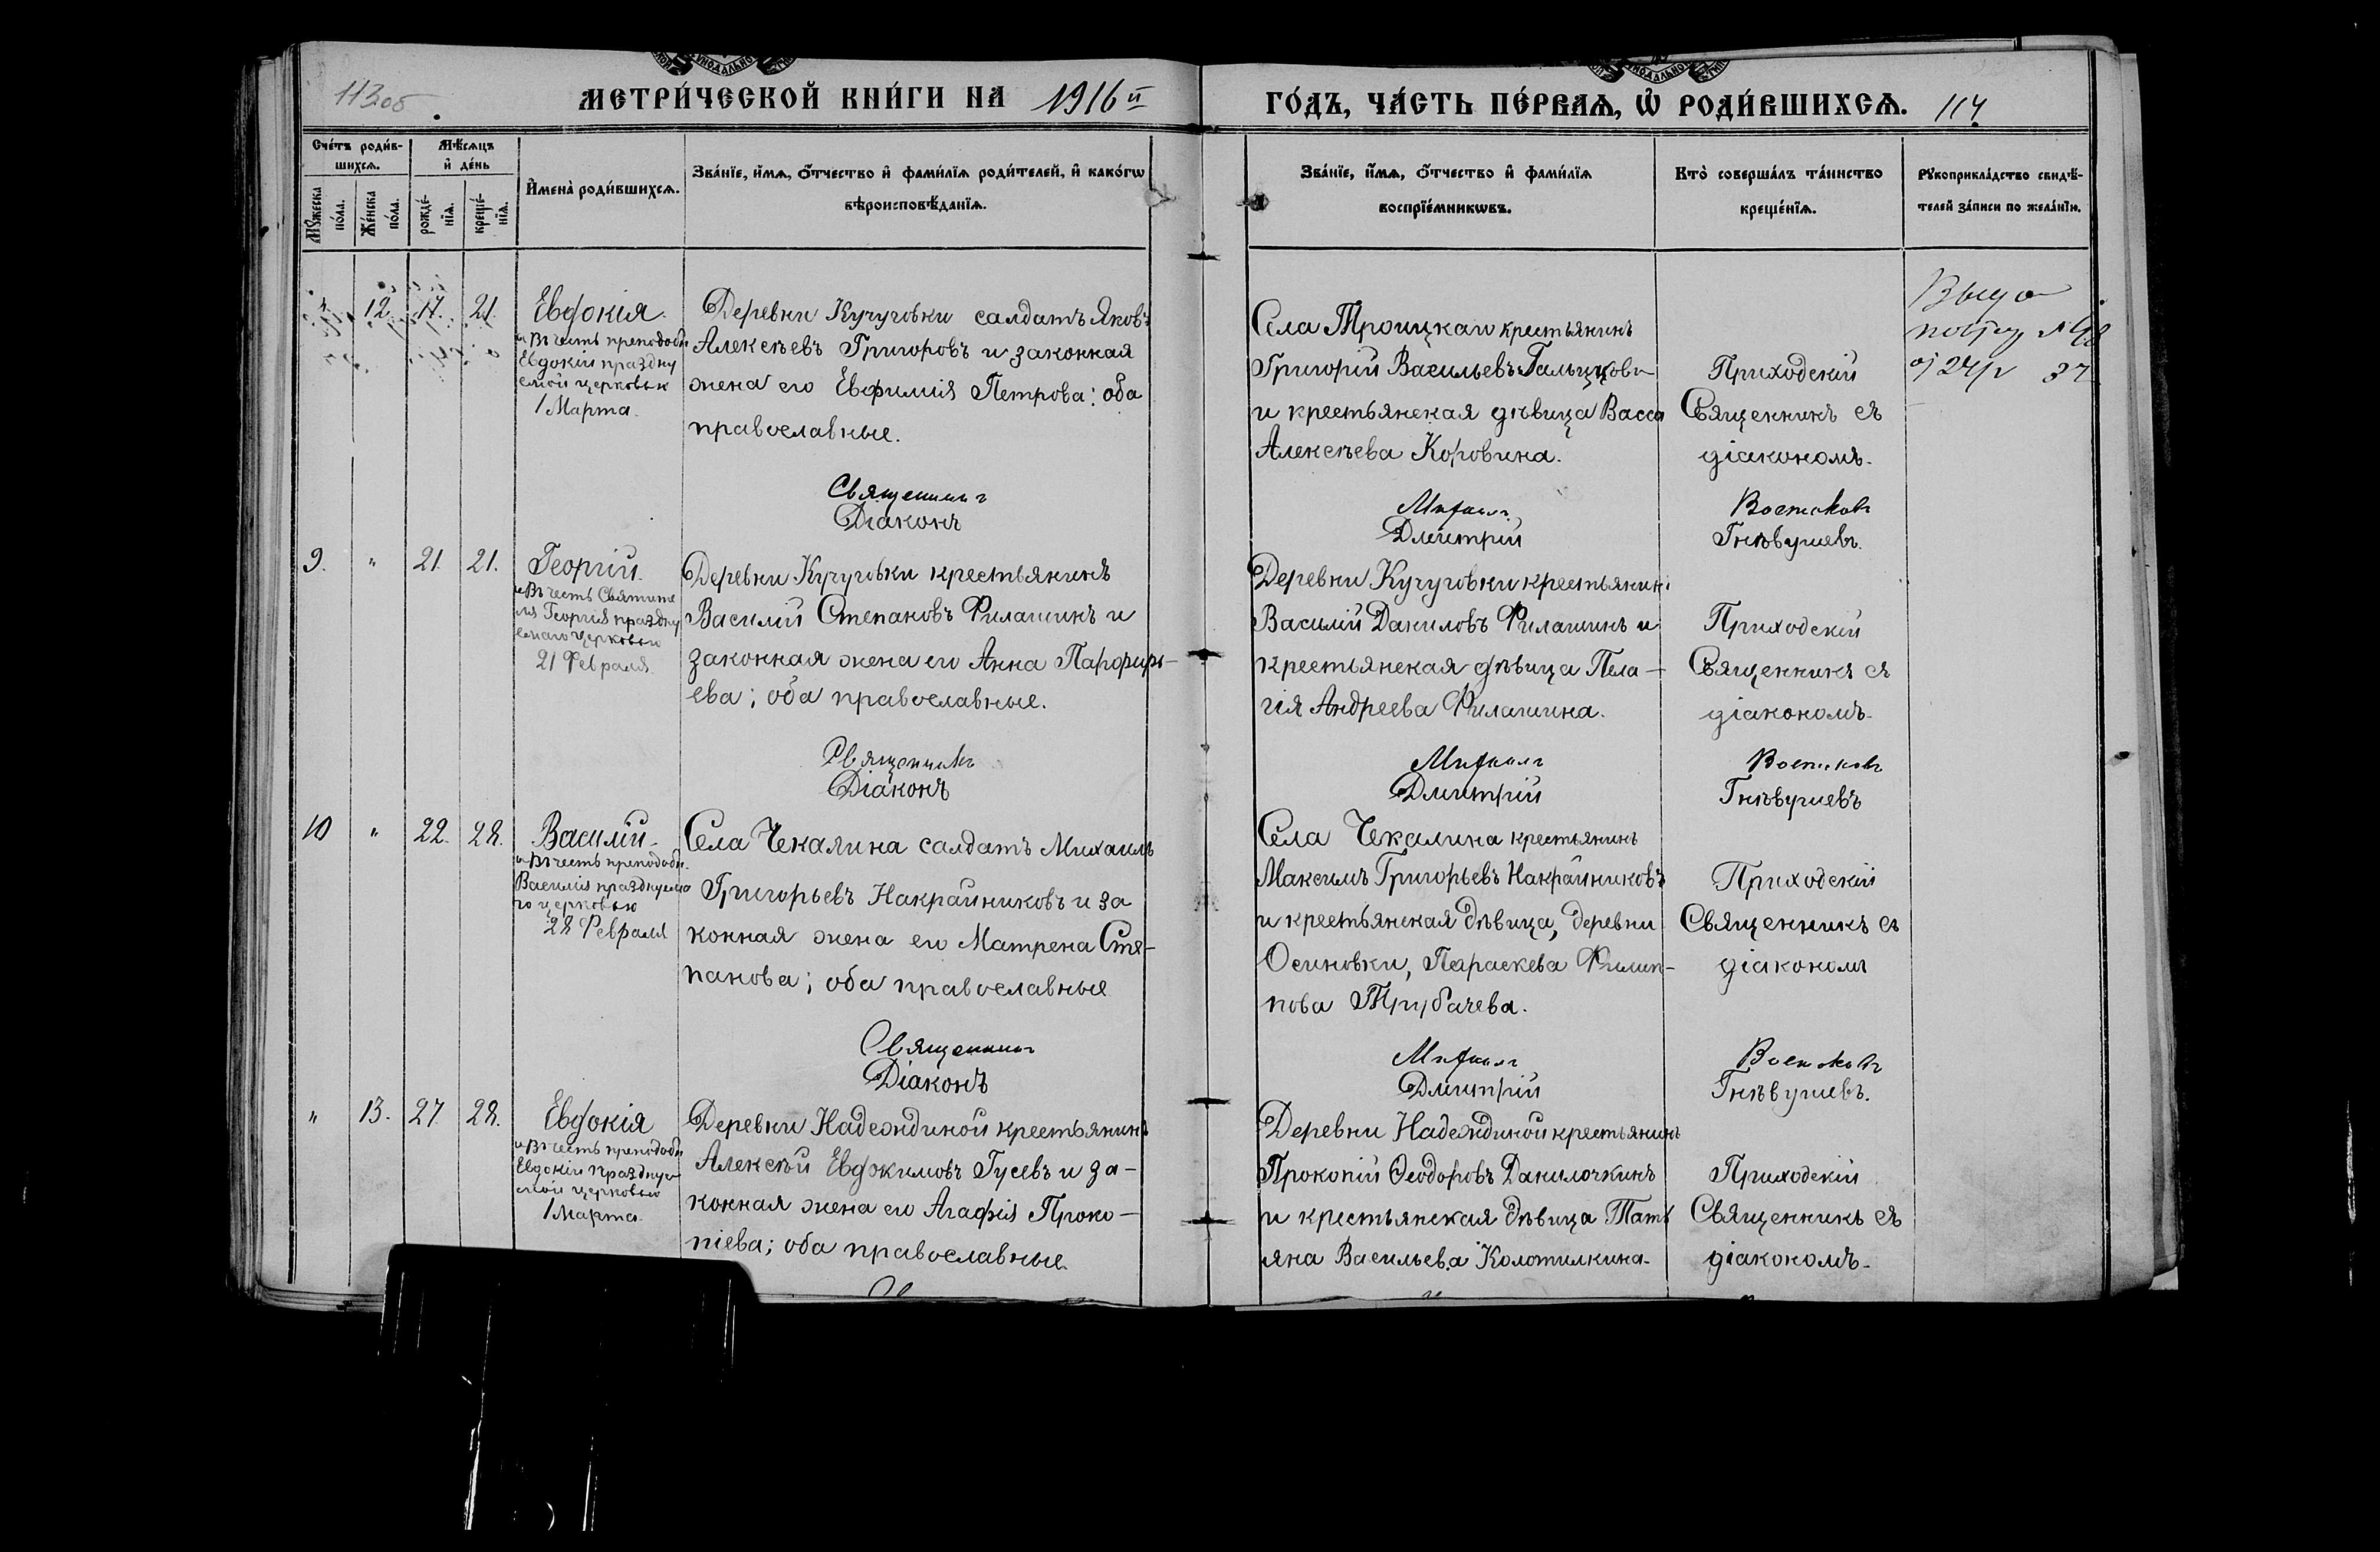 113об
МЕТРИ́ЧЕСКОЙ КНИ́ГИ НА 1916й
ГО́ДЪ, ЧА́СТЬ ПЕ́РВАѦ, Ѡ҆ РОДИ́ВШИХСѦ. 114
Сче́тъ роди́в-
шихсѧ.
Мѣ́сѧцъ
и҆ де́нь
Мꙋ́жеска
по́ла.
Же́нска
по́ла.
рожде́-
нїѧ.
креще́-
нїѧ.
И҆мена̀ роди́вшихсѧ.
Зва́нїе, и҆́мѧ, ѻ҆́тчество и҆ фами́лїѧ роди́телей, и҆ како́гѡ
вѣроисповѣ́данїѧ.
Зва́нїе, и҆́мѧ, ѻ҆́тчество и҆ фами́лїѧ
воспрїе́мникѡвъ.
Кто̀ соверша́лъ та́инство
креще́нїѧ.
Рꙋкоприкла́дство свидѣ́-
телей за́писи по жела́нїю.
12. 17. 21.
Евдокія.
и въ честь преподобн
Евдокіи праздну
емой церковью
1 Марта.
Деревни Кучуговки салдатъ Яковъ
Алексѣевъ Григоровъ и законная
жена его Евфимія Петрова: оба
православные.
Села Троицкаго крестьянинъ
Григорій Васильевъ Гальцковъ
и крестьянская дѣвица Васса
Алексѣева Коровина.
Приходскій
Священникъ съ
діакономъ.
Священникъ Михаилъ Востоковъ
Діаконъ Дмитрій Гнѣвушевъ.
9. " 21. 21.
Георгій.
и въ честь Святите
ля Георгія праздну
емаго церковью
21 Февраля.
Деревни Кучуговки крестьянинъ
Василій Степановъ Филашинъ и
законная жена его Анна Парфирь-
ева; оба православные.
Деревни Кучуговки крестьянинъ
Василій Даниловъ Филашинъ и
крестьянская дѣвица Пела-
гія Андреева Филашина.
Приходскій
Священникъ съ
діакономъ.
Священникъ Михаилъ Востоковъ
Діаконъ Дмитрій Гнѣвушевъ
10 " 22. 28.
Василій.
и въ честь преподобн.
Василія празднуема
го церковью
28 Февраля
Села Чекалина салдатъ Михаилъ
Григорьевъ Накрайниковъ и за
конная жена его Матрена Сте-
панова; оба православные
Села Чекалина крестьянинъ
Максимъ Григорьевъ Накрайниковъ
и крестьянская дѣвица, деревни
Осиновки, Параскева Филип-
пова Трубачева.
Приходскій
Священникъ съ
діакономъ
Священникъ Михаилъ Востоковъ
Діаконъ Дмитрій Гнѣвушевъ.
" 13. 27. 28.
Евдокія
и въ честь преподобн
Евдокіи празднуе
мой церковью
1 Марта.
Деревни Надеждиной крестьянинъ
Алексѣй Евдокимовъ Гусевъ и за-
конная жена его Агафія Проко-
піева; оба православные
Деревни Надеждиной крестьянинъ
Прокопій Ѳеодоровъ Данилочкинъ
и крестьянская дѣвица Тать
яна Васильева Колотилкина.
Приходскій
Священникъ съ
діакономъ.